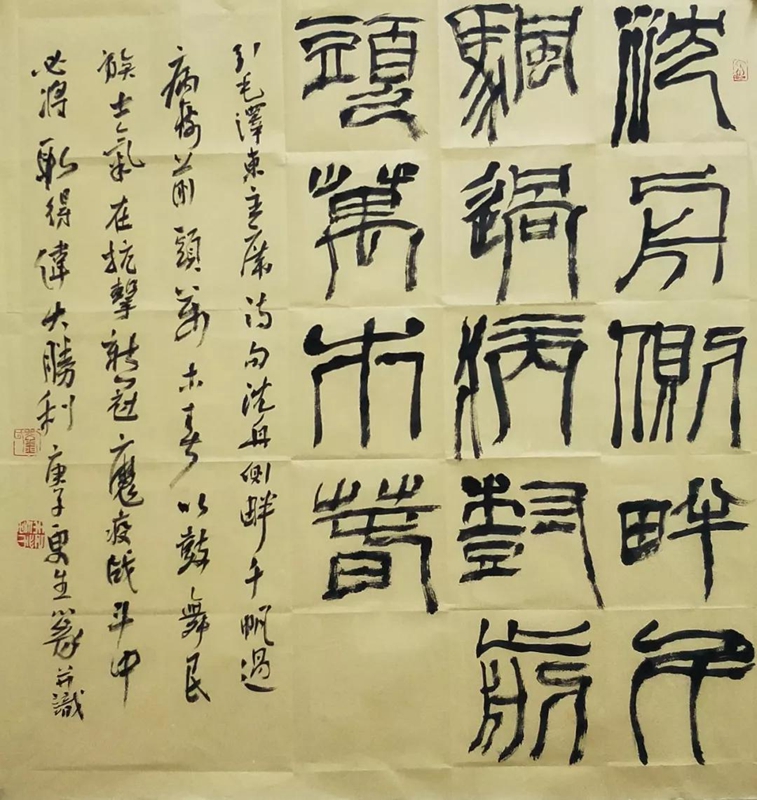 沈舟側畔千
颿過病樹前
頭萬木春
引毛澤東主席詩句沈舟側畔千帆過
病樹前頭萬木春以鼓舞民
族士氣在抗擊新冠魔疫战斗中
必將取得偉大勝利 庚子更生篆并識